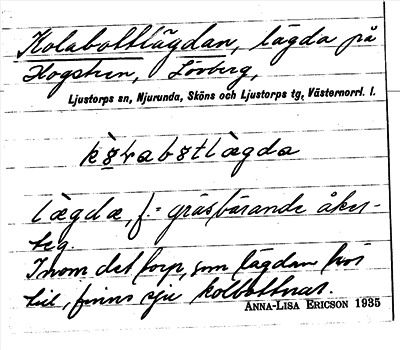 Kolabottlägdan, lägda på
Hogsten, Lövberg,
Ljustorps sn, Njurunda, Sköns och Ljustorps tg, Västernorrl. l.
lægda, f. = gräsbärande åker-
teg.
Inom det torp, som lägdan hör
till, finns sju kolbottnar.
ANNA-LISA ERICSON 1935